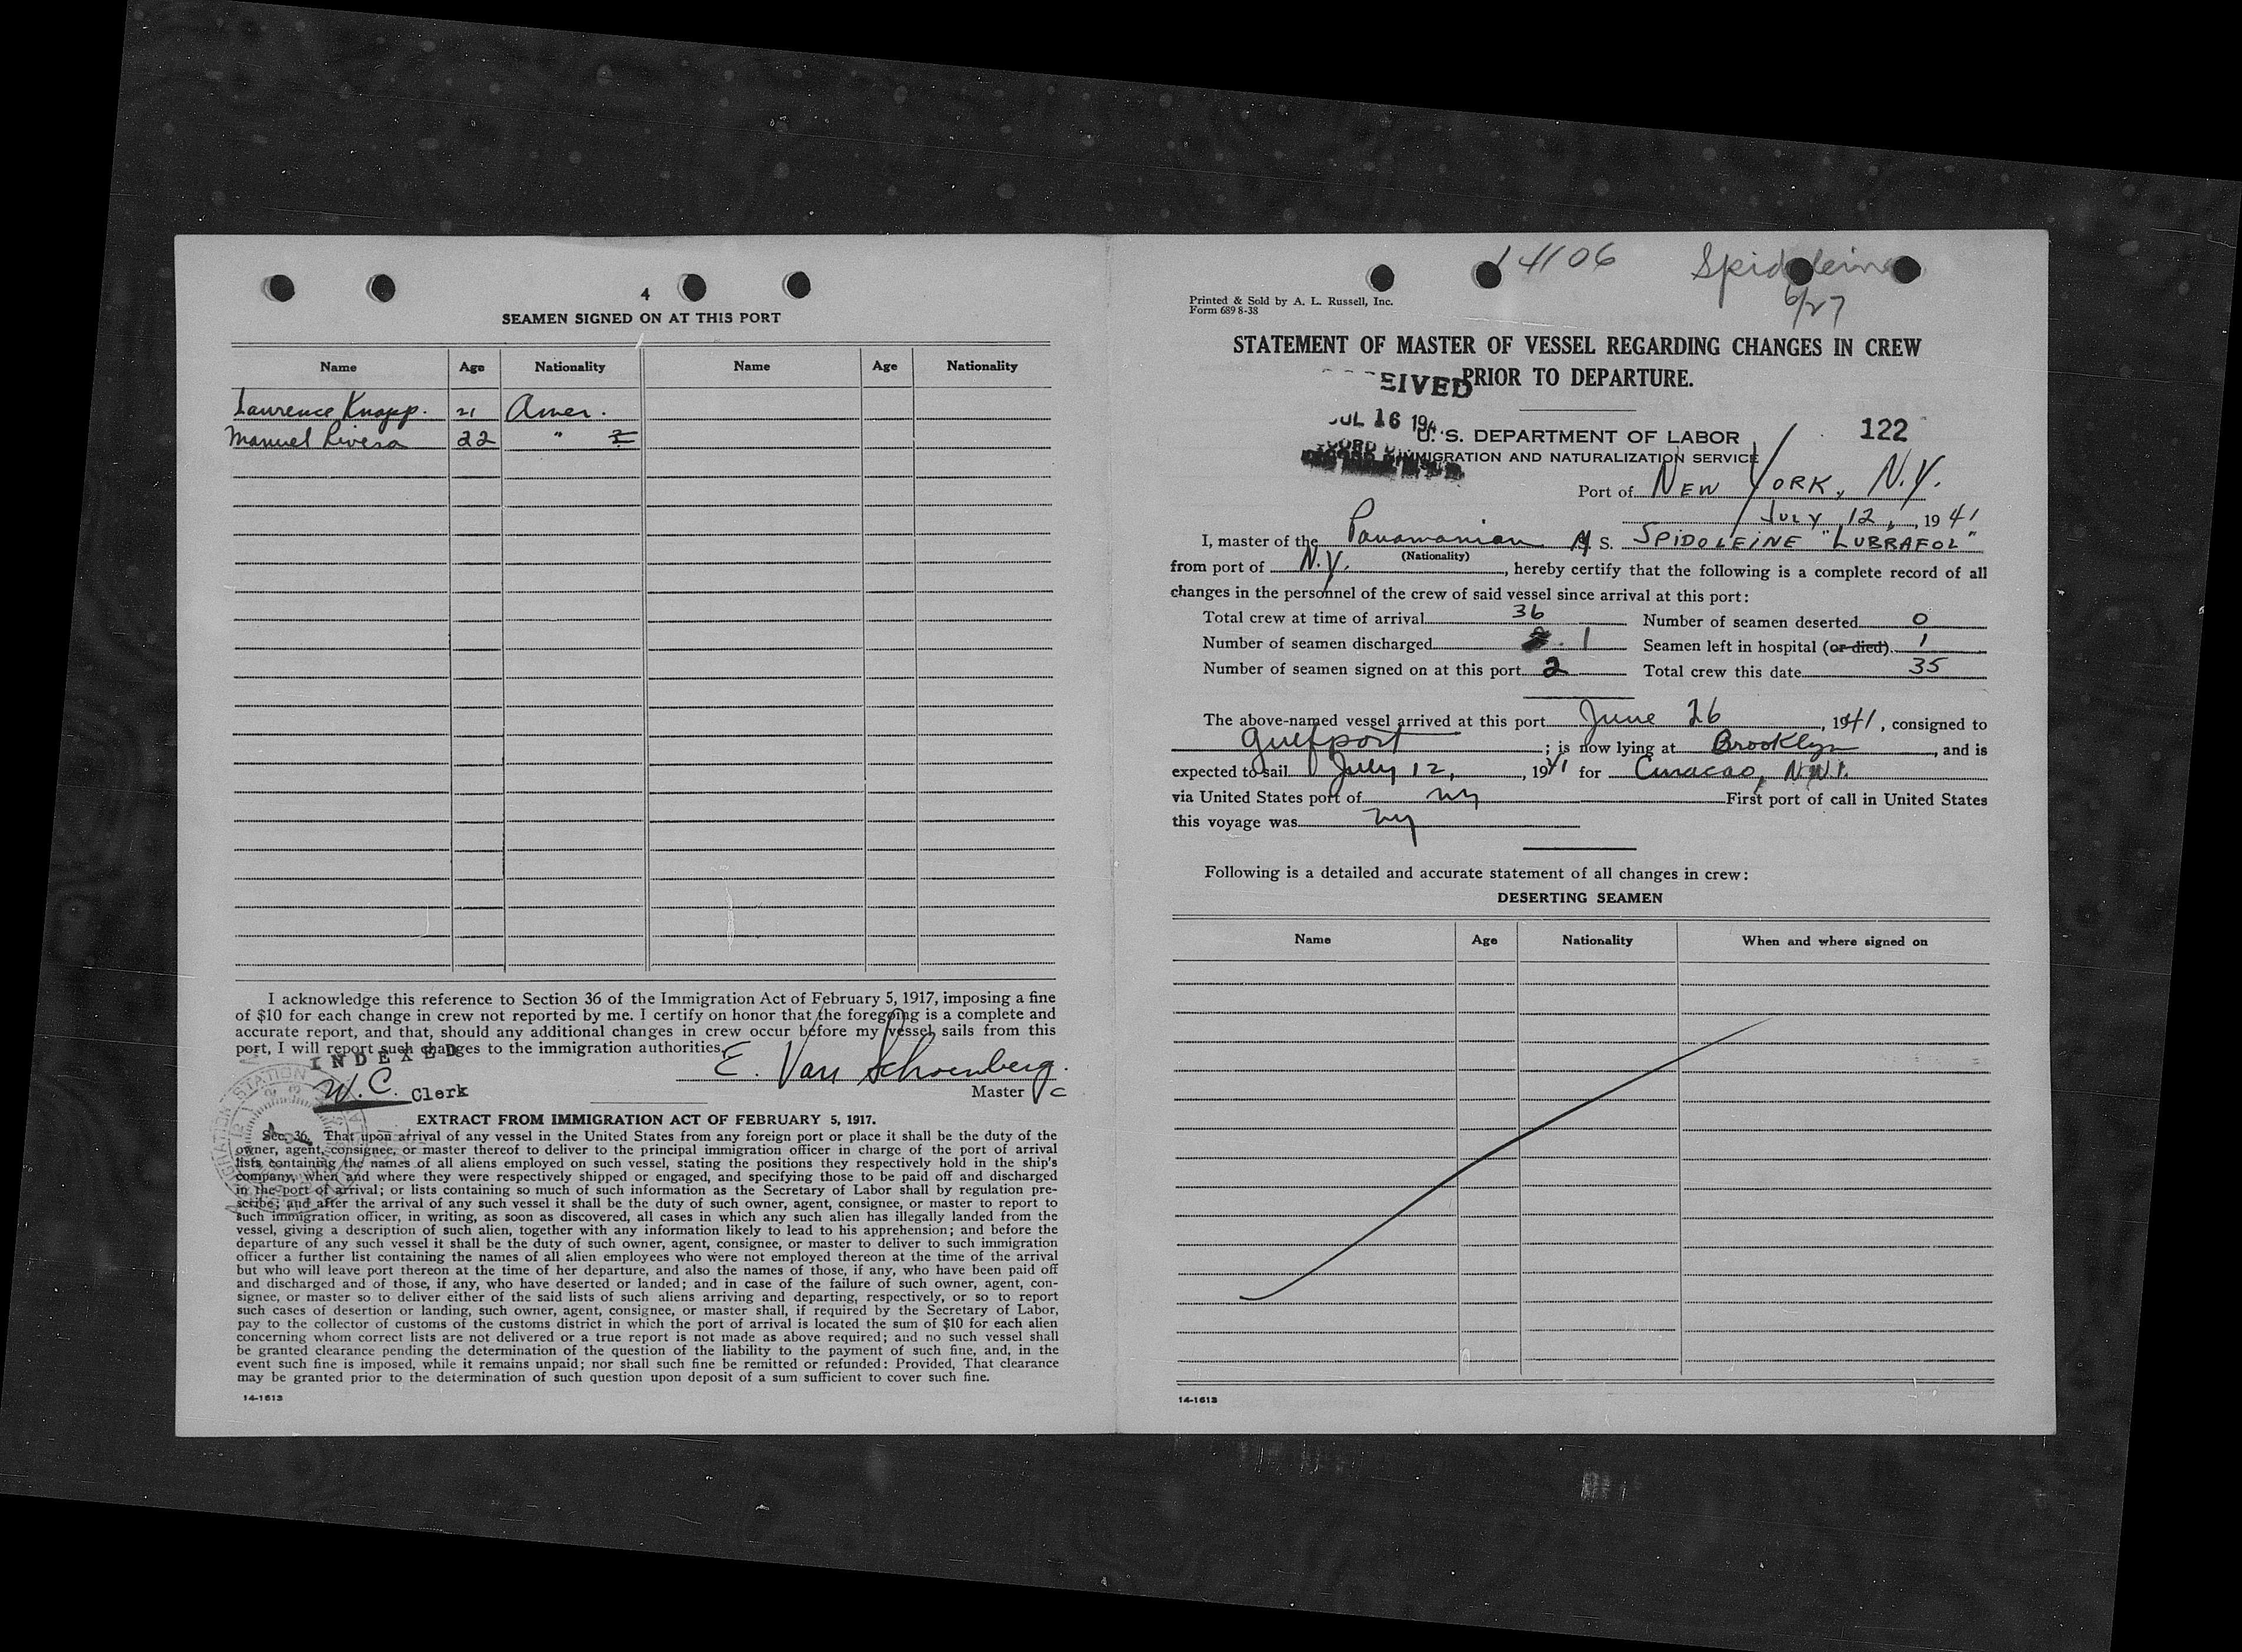 4
SEAMEN SIGNED ON AT THIS PORT
Name Age Nationality Name Age Nationality
Laurence Knapp. 21 Amer.
Manuel Rivera 22 " 2
I acknowledge this reference to Section 36 of the Immigration Act of February 5, 1917, imposing a fine
of $10 for each change in crew not reported by me. I certify on honor that the foregoing is a complete and
accurate report, and that, should any additional changes in crew occur before my vessel sails from this
port, I will report such changes to the immigration authorities.
INDEXED
E. Van Schoenberg.
W. C. Clerk
Master
EXTRACT FROM IMMIGRATION ACT OF FEBRUARY 5, 1917.
Sec. 36. That upon arrival of any vessel in the United States from any foreign port or place it shall be the duty of the
owner, agent, consignee, or master thereof to deliver to the principal immigration officer in charge of the port of arrival
lists containing the names of all aliens employed on such vessel, stating the positions they respectively hold in the ship's
company, when and where they were respectively shipped or engaged, and specifying those to be paid off and discharged
in the port of arrival; or lists containing so much of such information as the Secretary of Labor shall by regulation pre-
scribe; and after the arrival of any such vessel it shall be the duty of such owner, agent, consignee, or master to report to
such immigration officer, in writing, as soon as discovered, all cases in which any such alien has illegally landed from the
vessel, giving a description of such alien, together with any information likely to lead to his apprehension; and before the
departure of any such vessel it shall be the duty of such owner, agent, consignee, or master to deliver to such immigration
officer a further list containing the names of all alien employees who were not employed thereon at the time of the arrival
but who will leave port thereon at the time of her departure, and also the names of those, if any, who have been paid off
and discharged and of those, if any, who have deserted or landed; and in case of the failure of such owner, agent, con-
signee, or master so to deliver either of the said lists of such aliens arriving and departing, respectively, or so to report
such cases of desertion or landing, such owner, agent, consignee, or master shall, if required by the Secretary of Labor,
pay to the collector of customs of the customs district in which the port of arrival is located the sum of $10 for each alien
concerning whom correct lists are not delivered or a true report is not made as above required; and no such vessel shall
be granted clearance pending the determination of the question of the liability to the payment of such fine, and, in the
event such fine is imposed, while it remains unpaid; nor shall such fine be remitted or refunded: Provided, That clearance
may be granted prior to the determination of such question upon deposit of a sum sufficient to cover such fine.
14-1613
14106 Spidoleine
6/27
Printed & Sold by A. L. Russell, Inc.
Form 689 8-38
STATEMENT OF MASTER OF VESSEL REGARDING CHANGES IN CREW
PRIOR TO DEPARTURE.
EIVED
JUL 16 194
U. S. DEPARTMENT OF LABOR 122
IMMIGRATION AND NATURALIZATION SERVICE
Port of NEW YORK, N.Y.
JULY 12, 1941
I, master of the Panamanian M. S. SPIDOLEINE "LUBRAFOL"
(Nationality)
from port of N.Y., hereby certify that the following is a complete record of all
changes in the personnel of the crew of said vessel since arrival at this port:
Total crew at time of arrival 36 Number of seamen deserted 0
Number of seamen discharged 1 Seamen left in hospital (or died) 1
Number of seamen signed on at this port 2 Total crew this date 35
The above-named vessel arrived at this port June 26, 1941, consigned to
Gulfport; is now lying at Brooklyn, and is
expected to sail July 12, 1941 for Curacao, N.W.I.
via United States port of ny First port of call in United States
this voyage was ny
Following is a detailed and accurate statement of all changes in crew:
DESERTING SEAMEN
Name Age Nationality When and where signed on
14-1613